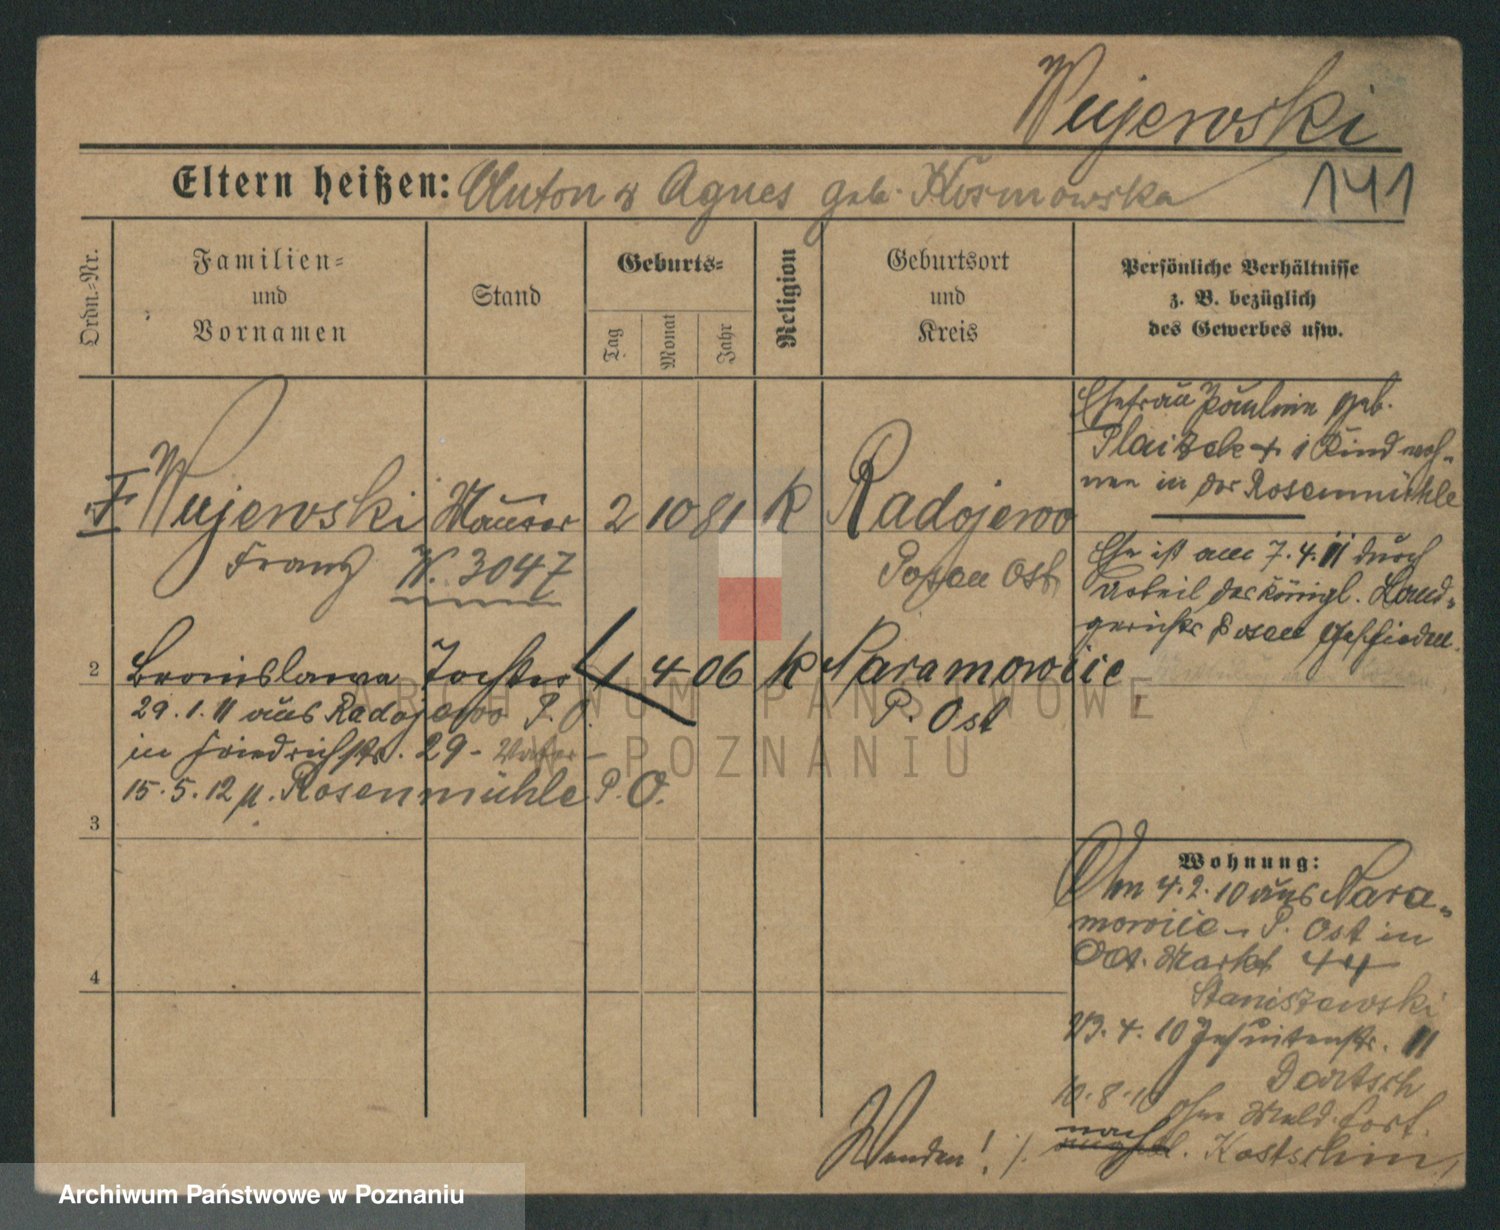 Wujewski
Eltern heißen: Anton & Agnes geb. Kosmowska
141
Ordn.-Nr.
Familien-
und
Vornamen
Stand
Geburts-
Tag
Monat
Jahr
Religion
Geburtsort
und
Kreis
Persönliche Verhältnisse
z. B. bezüglich
des Gewerbes usw.
Ehefrau Pauline geb.
Plaizek + 1 Kind woh-
nen in der Rosenmühle
Wujewski Maurer 2 10 81 K Radojewo
Franz W. 3047 Posen Ost
Ehe ist am 7.4.11 durch
Urteil des Königl. Land-
gerichts Posen geschieden.
2 Bronislawa Tochter 1 4 06 K Naramowice
P. Ost
29.1.11 aus Radojewo P. O.
in Friedrichstr. 29 - Vater -
15.5.12 n. Rosenmühle P. O.
3
4
Wohnung:
Am 4.2.10 aus Nara-
mowice - P. Ost in
Alt. Markt 44
Staniszewski
23.4.10 Jesuitenstr. 11
Dartsch
10.8.10 ohne Meld. fort.
nach Kostschin
Wenden! ./.
ARCHIWUM PAŃSTWOWE
W POZNANIU
Archiwum Państwowe w Poznaniu